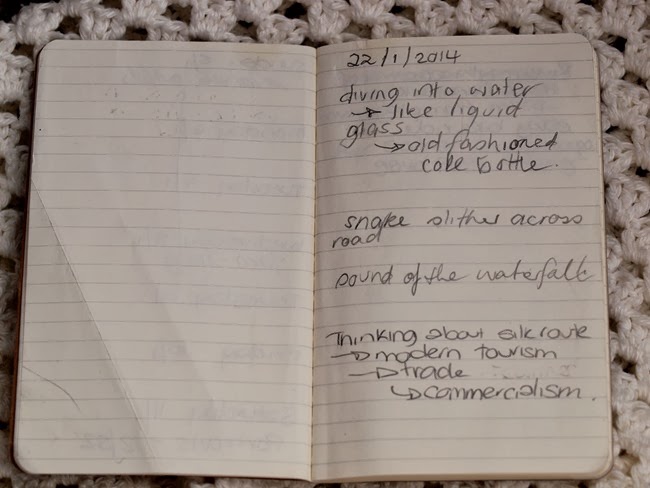 22/1/2014
diving into water
→ like liquid
glass
→ old fashioned
coke bottle.
snake slither across
road
sound of the waterfall
Thinking about silk route
→ modern tourism
→ trade
↳ commercialism.